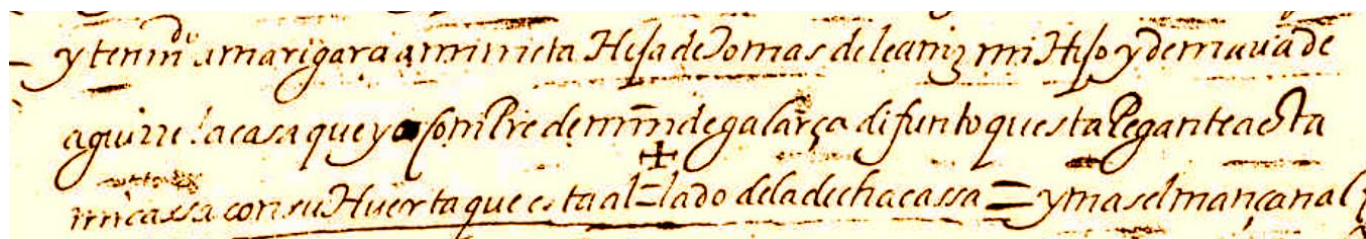 yten md.º a marigarcia mi nieta Hija de Tomas de leaniz mi Hijo y de maria de
aguirre la casa que yo comPre de min de galarça difunto questa Pegante a esta
mi cassa con su Huerta que esta al = lado de la dicha cassa = y mas el mançanal